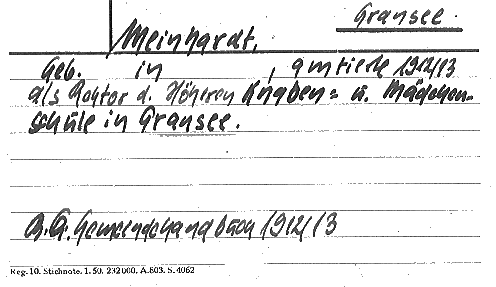 Gransee.
Meinhardt,
Geb. in , amtierte 1912/13
als Rektor d. Höheren Knaben= u. Mädchen-
schule in Gransee.
Gemeindehandbuch 1912/13
Reg. 10. Stichnote. 1. 50. 232000. A.603. S. 4062